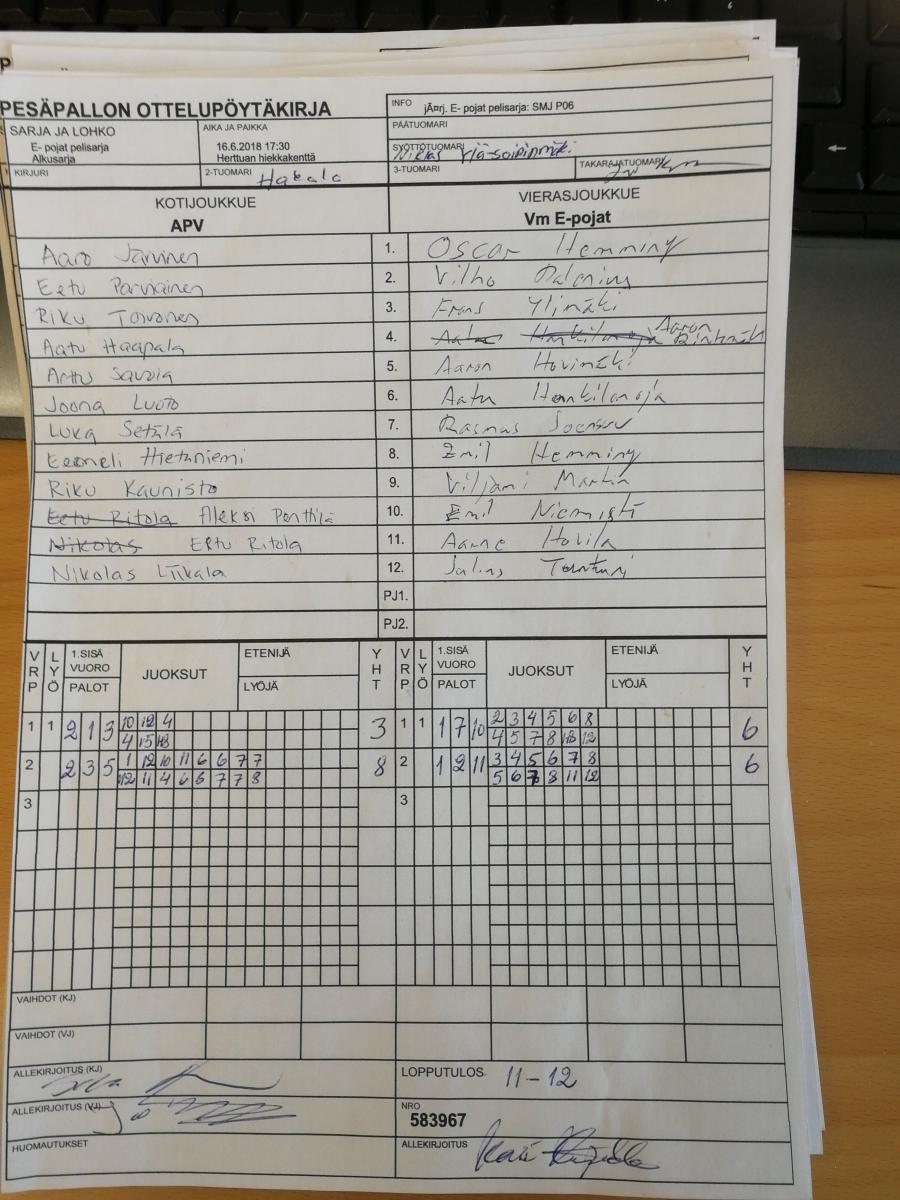 PESÄPALLON OTTELUPÖYTÄKIRJA
INFO jÃ¤rj. E- pojat pelisarja: SMJ P06
SARJA JA LOHKO
E- pojat pelisarja
Alkusarja
AIKA JA PAIKKA
16.6.2018 17:30
Herttuan hiekkakenttä
PÄÄTUOMARI
SYÖTTÖTUOMARI Niklas
KIRJURI
2-TUOMARI Hakala
3-TUOMARI
TAKARAJATUOMARI
KOTIJOUKKUE
APV
VIERASJOUKKUE
Vm E-pojat
Aaro Järvinen 1. Oscar Hemming
Eetu Parviainen 2. Vilho
Riku Toivonen 3. Frans Ylimäki
Aatu Haapala 4. Aatu Aaron
Arttu Savola 5. Aaron Hovimäki
Joona Luoto 6. Aatu
Luka Setälä 7. Rasmus Joensuu
Eemeli Hietaniemi 8. Emil Hemming
Riku Kaunisto 9. Viljami
Eetu Ritola Aleksi Penttilä 10. Emil Niemistö
Nikolas Eetu Ritola 11. Aarne Hovila
Nikolas Liikala 12. Julius
PJ1.
PJ2.
VRP LYÖ 1.SISÄ VUORO PALOT JUOKSUT ETENIJÄ LYÖJÄ YHT VRP LYÖ 1.SISÄ VUORO PALOT JUOKSUT ETENIJÄ LYÖJÄ YHT
1 1 2 1 3 10 12 4 3 1 1 1 7 10 2 3 4 5 6 8 6
4 5 4 5 7 8 12
2 2 3 5 1 12 10 11 6 6 7 7 8 2 1 2 11 3 4 5 6 7 8 6
12 11 4 6 6 7 7 8 5 6 7 8 11 12
3 3
VAIHDOT (KJ)
VAIHDOT (VJ)
ALLEKIRJOITUS (KJ)
LOPPUTULOS 11-12
ALLEKIRJOITUS (VJ)
NRO
583967
HUOMAUTUKSET
ALLEKIRJOITUS